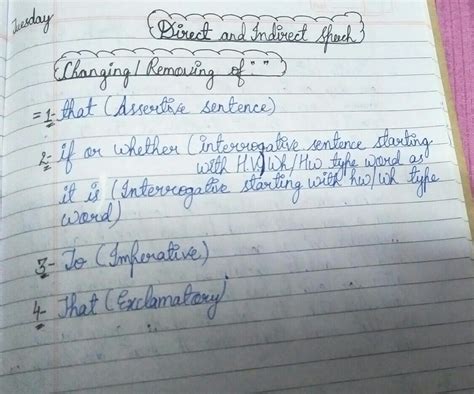 Tuesday
Direct and Indirect Speech
Changing/Removing of " "
= 1- that (Assertive sentence)
2- if or whether (interrogative sentence starting
with H.V) Wh/Hw type word as
it is (Interrogative starting with hw/wh type
word)
3- To (Imperative)
4- That (Exclamatory)